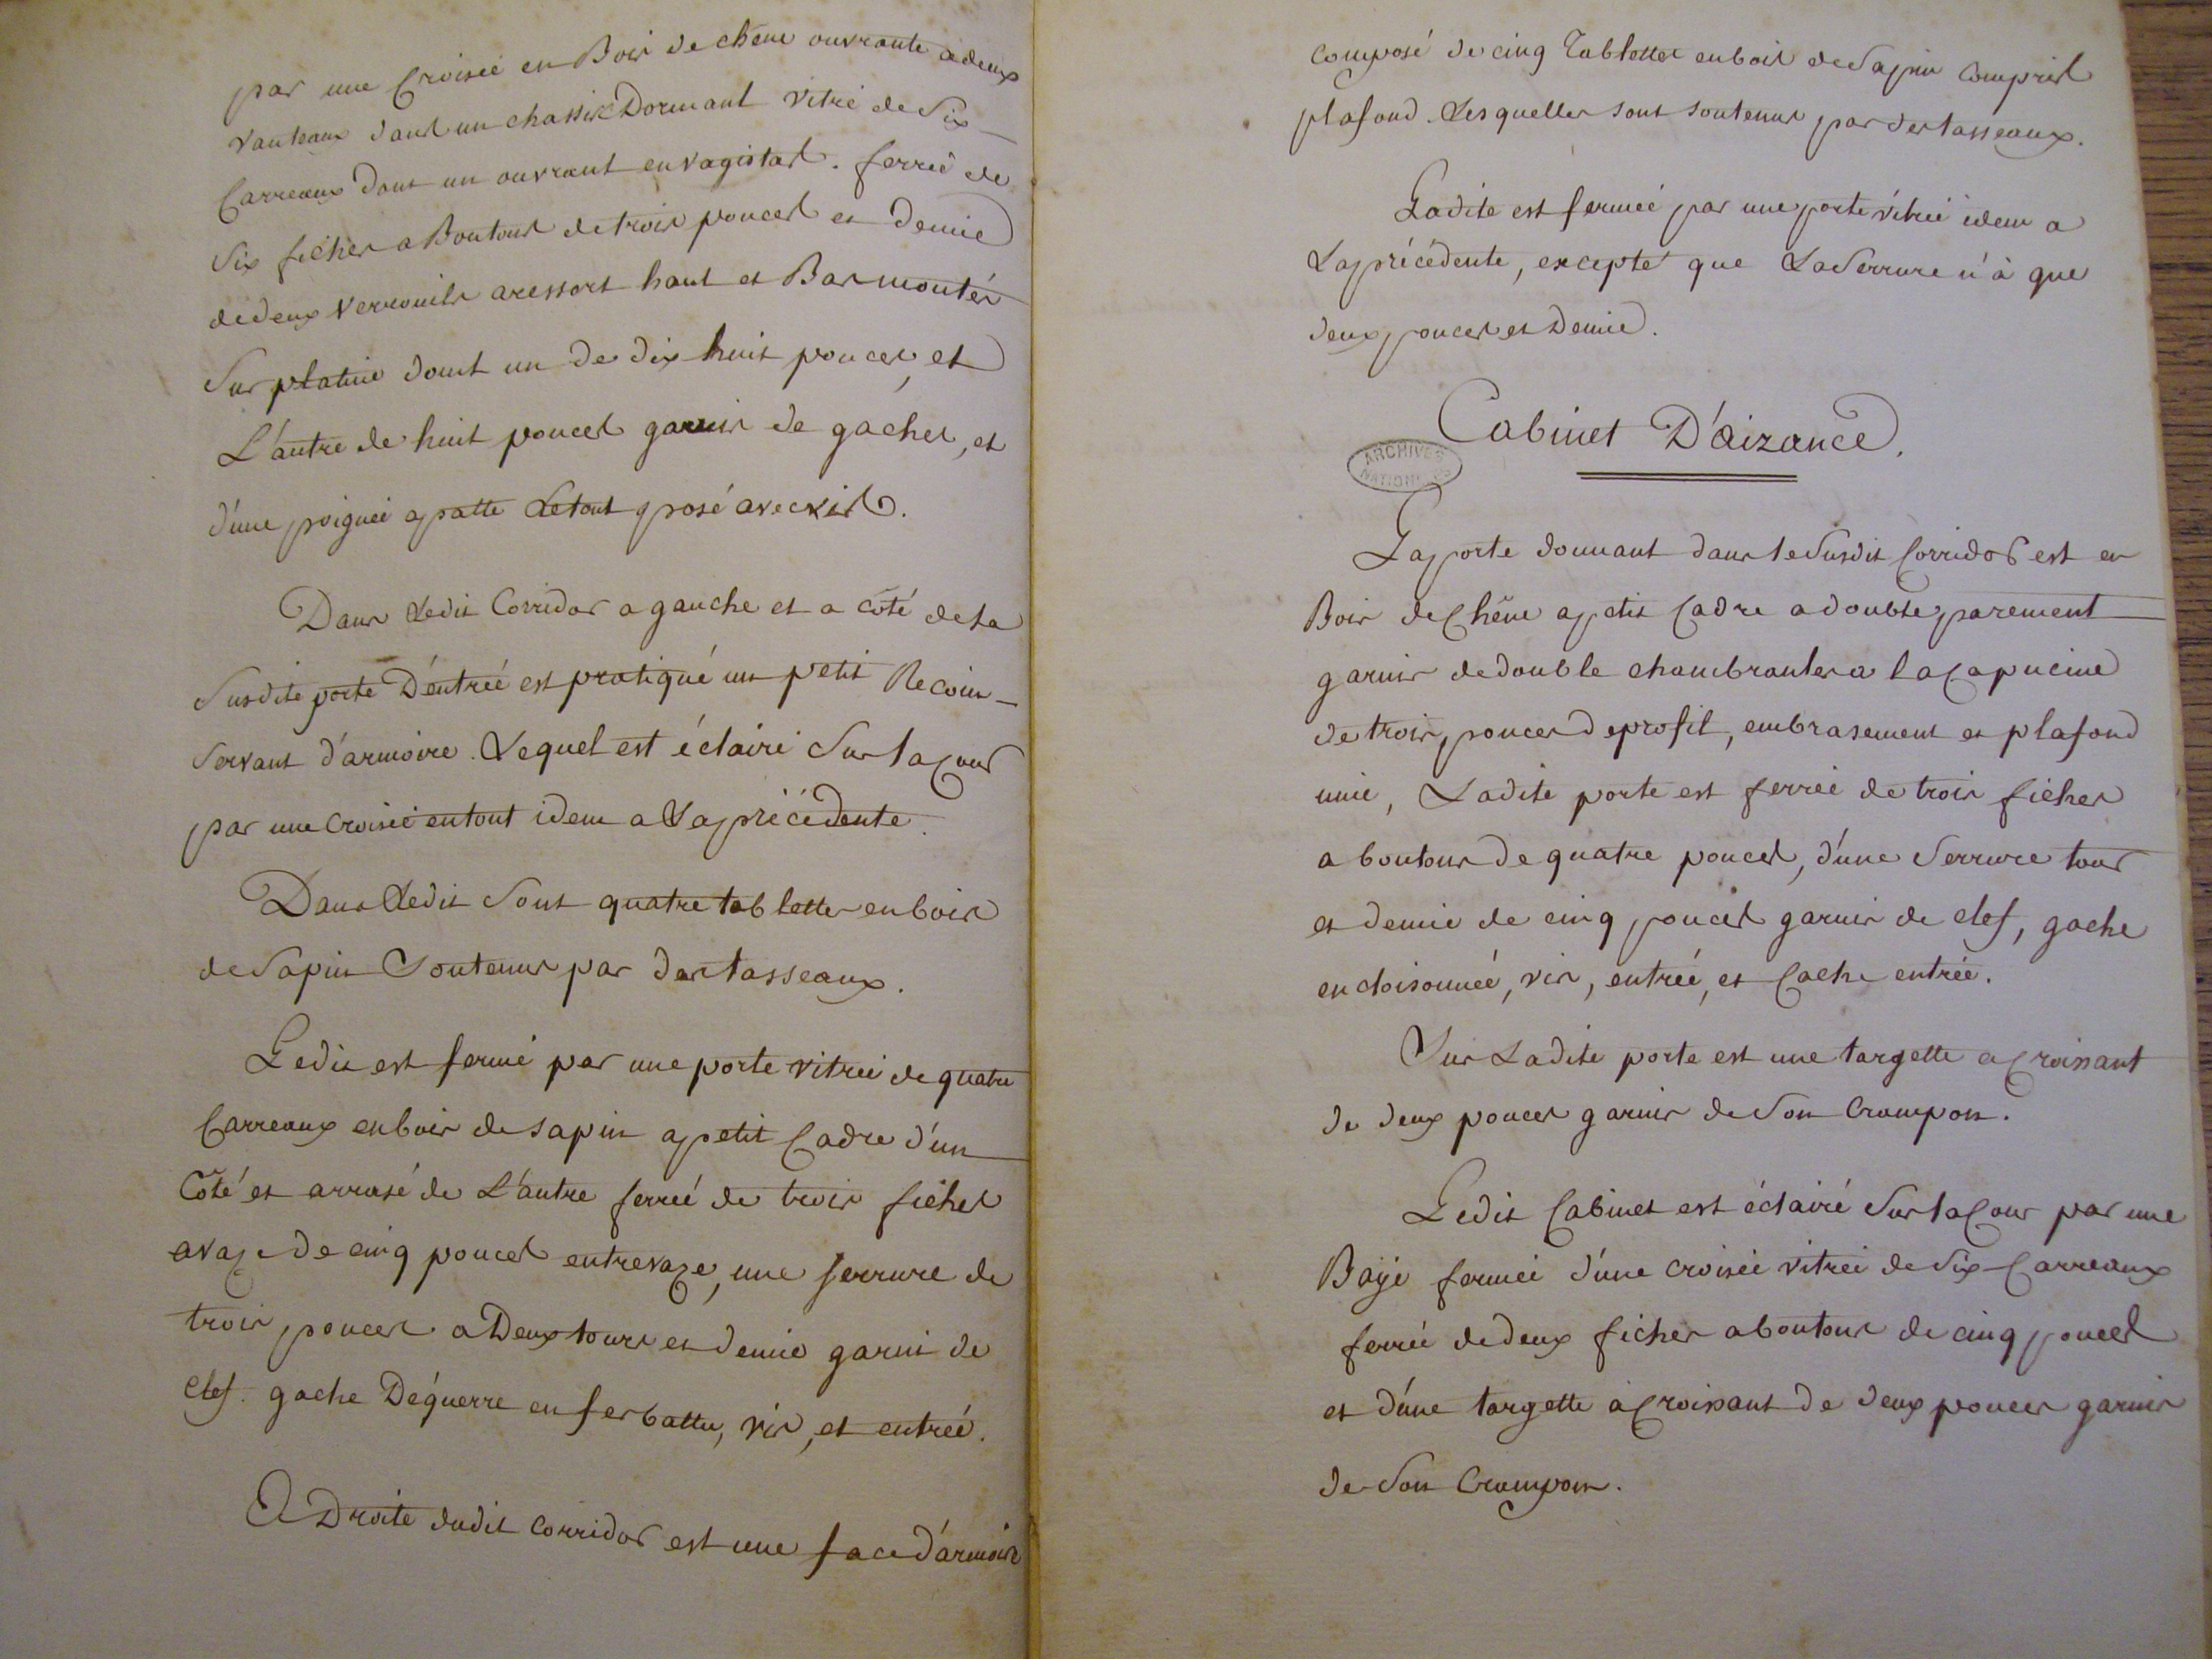 par une Croisée en Bois de chêne ouvrante a deux
vanteaux dans un chassis Dormant vitré de Six
Carreaux dont un ouvrant en vagistas. ferrée de
Six fiches a Boutons de trois pouces et Demie
de deux verrouils a ressort haut et Bas montés
Sur platine dont un de dix huit pouces, et
L'autre de huit pouces garnis de gaches, et
d'une poignée a patte Le tout posé avec vis.
Dans Ledit Corridor a gauche et a côté de la
Susdite porte D'entrée est pratiqué un petit Recoin
Servant d'armoire. Lequel est éclairé Sur la Cour
par une Croisée en tout idem a La précédente.
Dans Ledit Sont quatre tablettes en bois
de Sapin Soutenus par des tasseaux.
Ledit est fermé par une porte vitrée de quatre
Carreaux en bois de sapin a petit Cadre d'un
Côté et arrasé de L'autre ferrée de trois fiches
a vaze de cinq pouces entrevaze, une serrure de
trois pouces a Deux tours et demie garni de
clef. gache D'equerre en fer battu, vis, et entrée.
A Droite dudit Corridor est une face d'armoire
Composé de cinq Tablettes en bois de Sapin Compris
plafond. Lesquelles sont soutenus par des tasseaux.
Ladite est fermée par une porte vitrée idem a
La précédente, excepté que La Serrure n'à que
deux pouces et Demie.
Cabinet D'aizance.
ARCHIVES
NATIONALES
La porte donnant dans le Susdit Corridor est en
Bois de Chêne a petit Cadre a double parement
garnis de double chambranles a la Capucine
de trois pouces de profil, embrasement et plafond
unie, Ladite porte est ferrée de trois fiches
a boutons de quatre pouces, d'une Serrure tour
et demie de cinq pouces garnis de clef, gache
encloisonnée, vis, entrée, et Cache entrée.
Sur Ladite porte est une targette a Croissant
de deux pouces garnis de Son Crampon.
Ledit Cabinet est éclairé Sur la Cour par une
Baye fermée d'une croisée vitrée de Six Carreaux
ferrée de deux fiches a boutons de cinq pouces
et d'une targette à Croissant de deux pouces garnis
de Son Crampon.